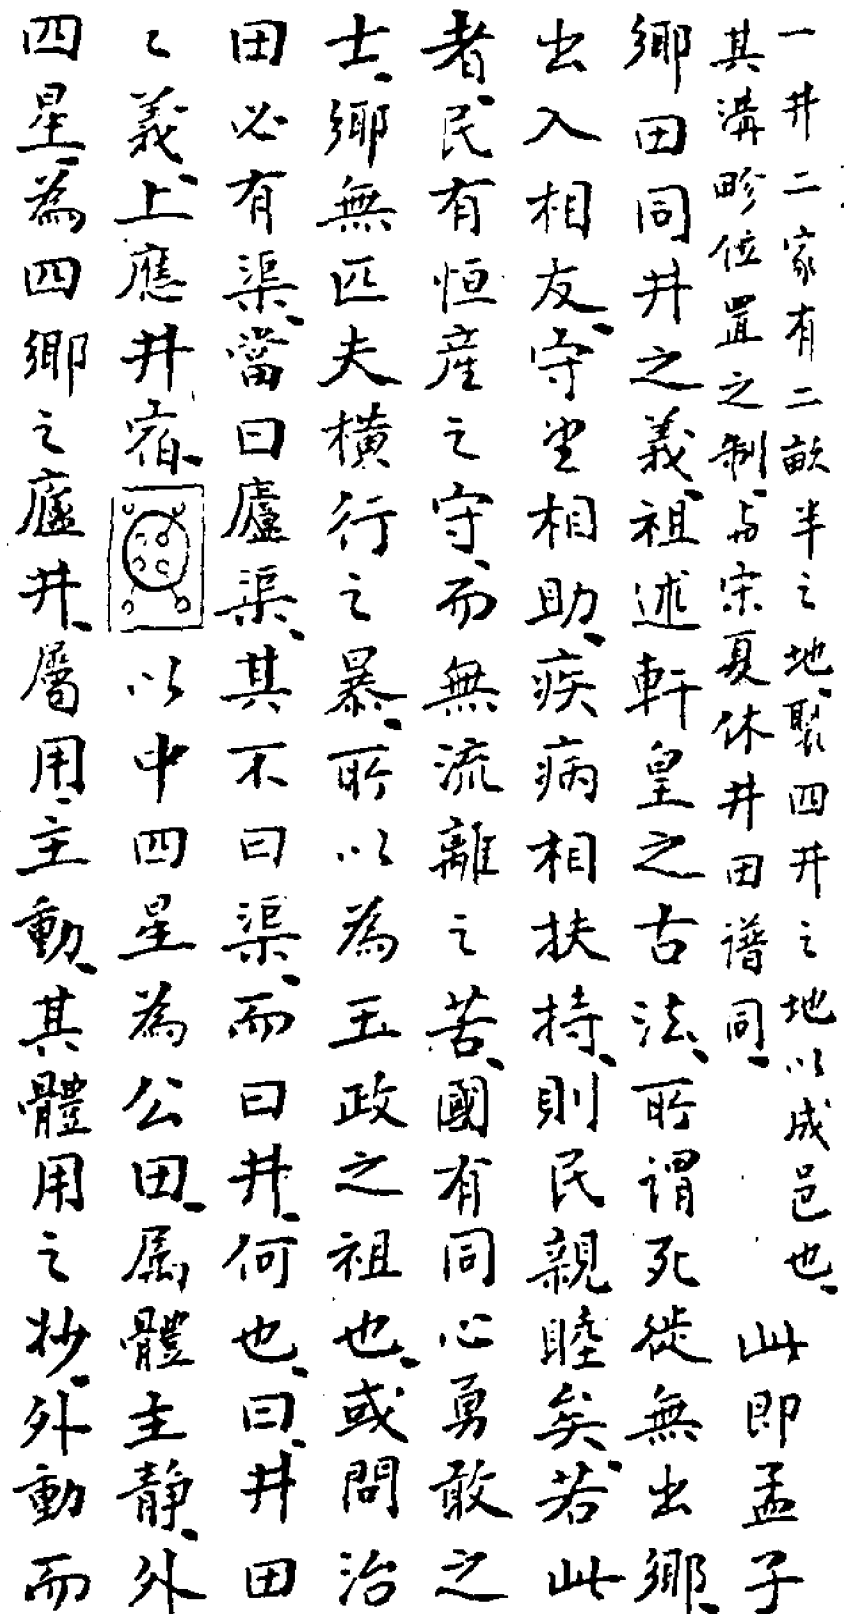 一井二家有二畝半之地、聚四井之地以成邑也、
其溝畛位置之制、与宋夏休井田譜同、
此即孟子
鄉田同井之義、祖述軒皇之古法、所謂死徙無出鄉、
出入相友、守望相助、疾病相扶持、則民親睦矣、若此
者、民有恒產之守、而無流離之苦、國有同心勇敢之
士、鄉無匹夫橫行之暴、所以為王政之祖也、或問治
田必有渠、當曰廬渠、其不曰渠、而曰井、何也、曰、井田
之義、上應井宿、以中四星為公田、属體主靜、外
四星、為四鄉之廬井、屬用、主動、其體用之妙、外動而